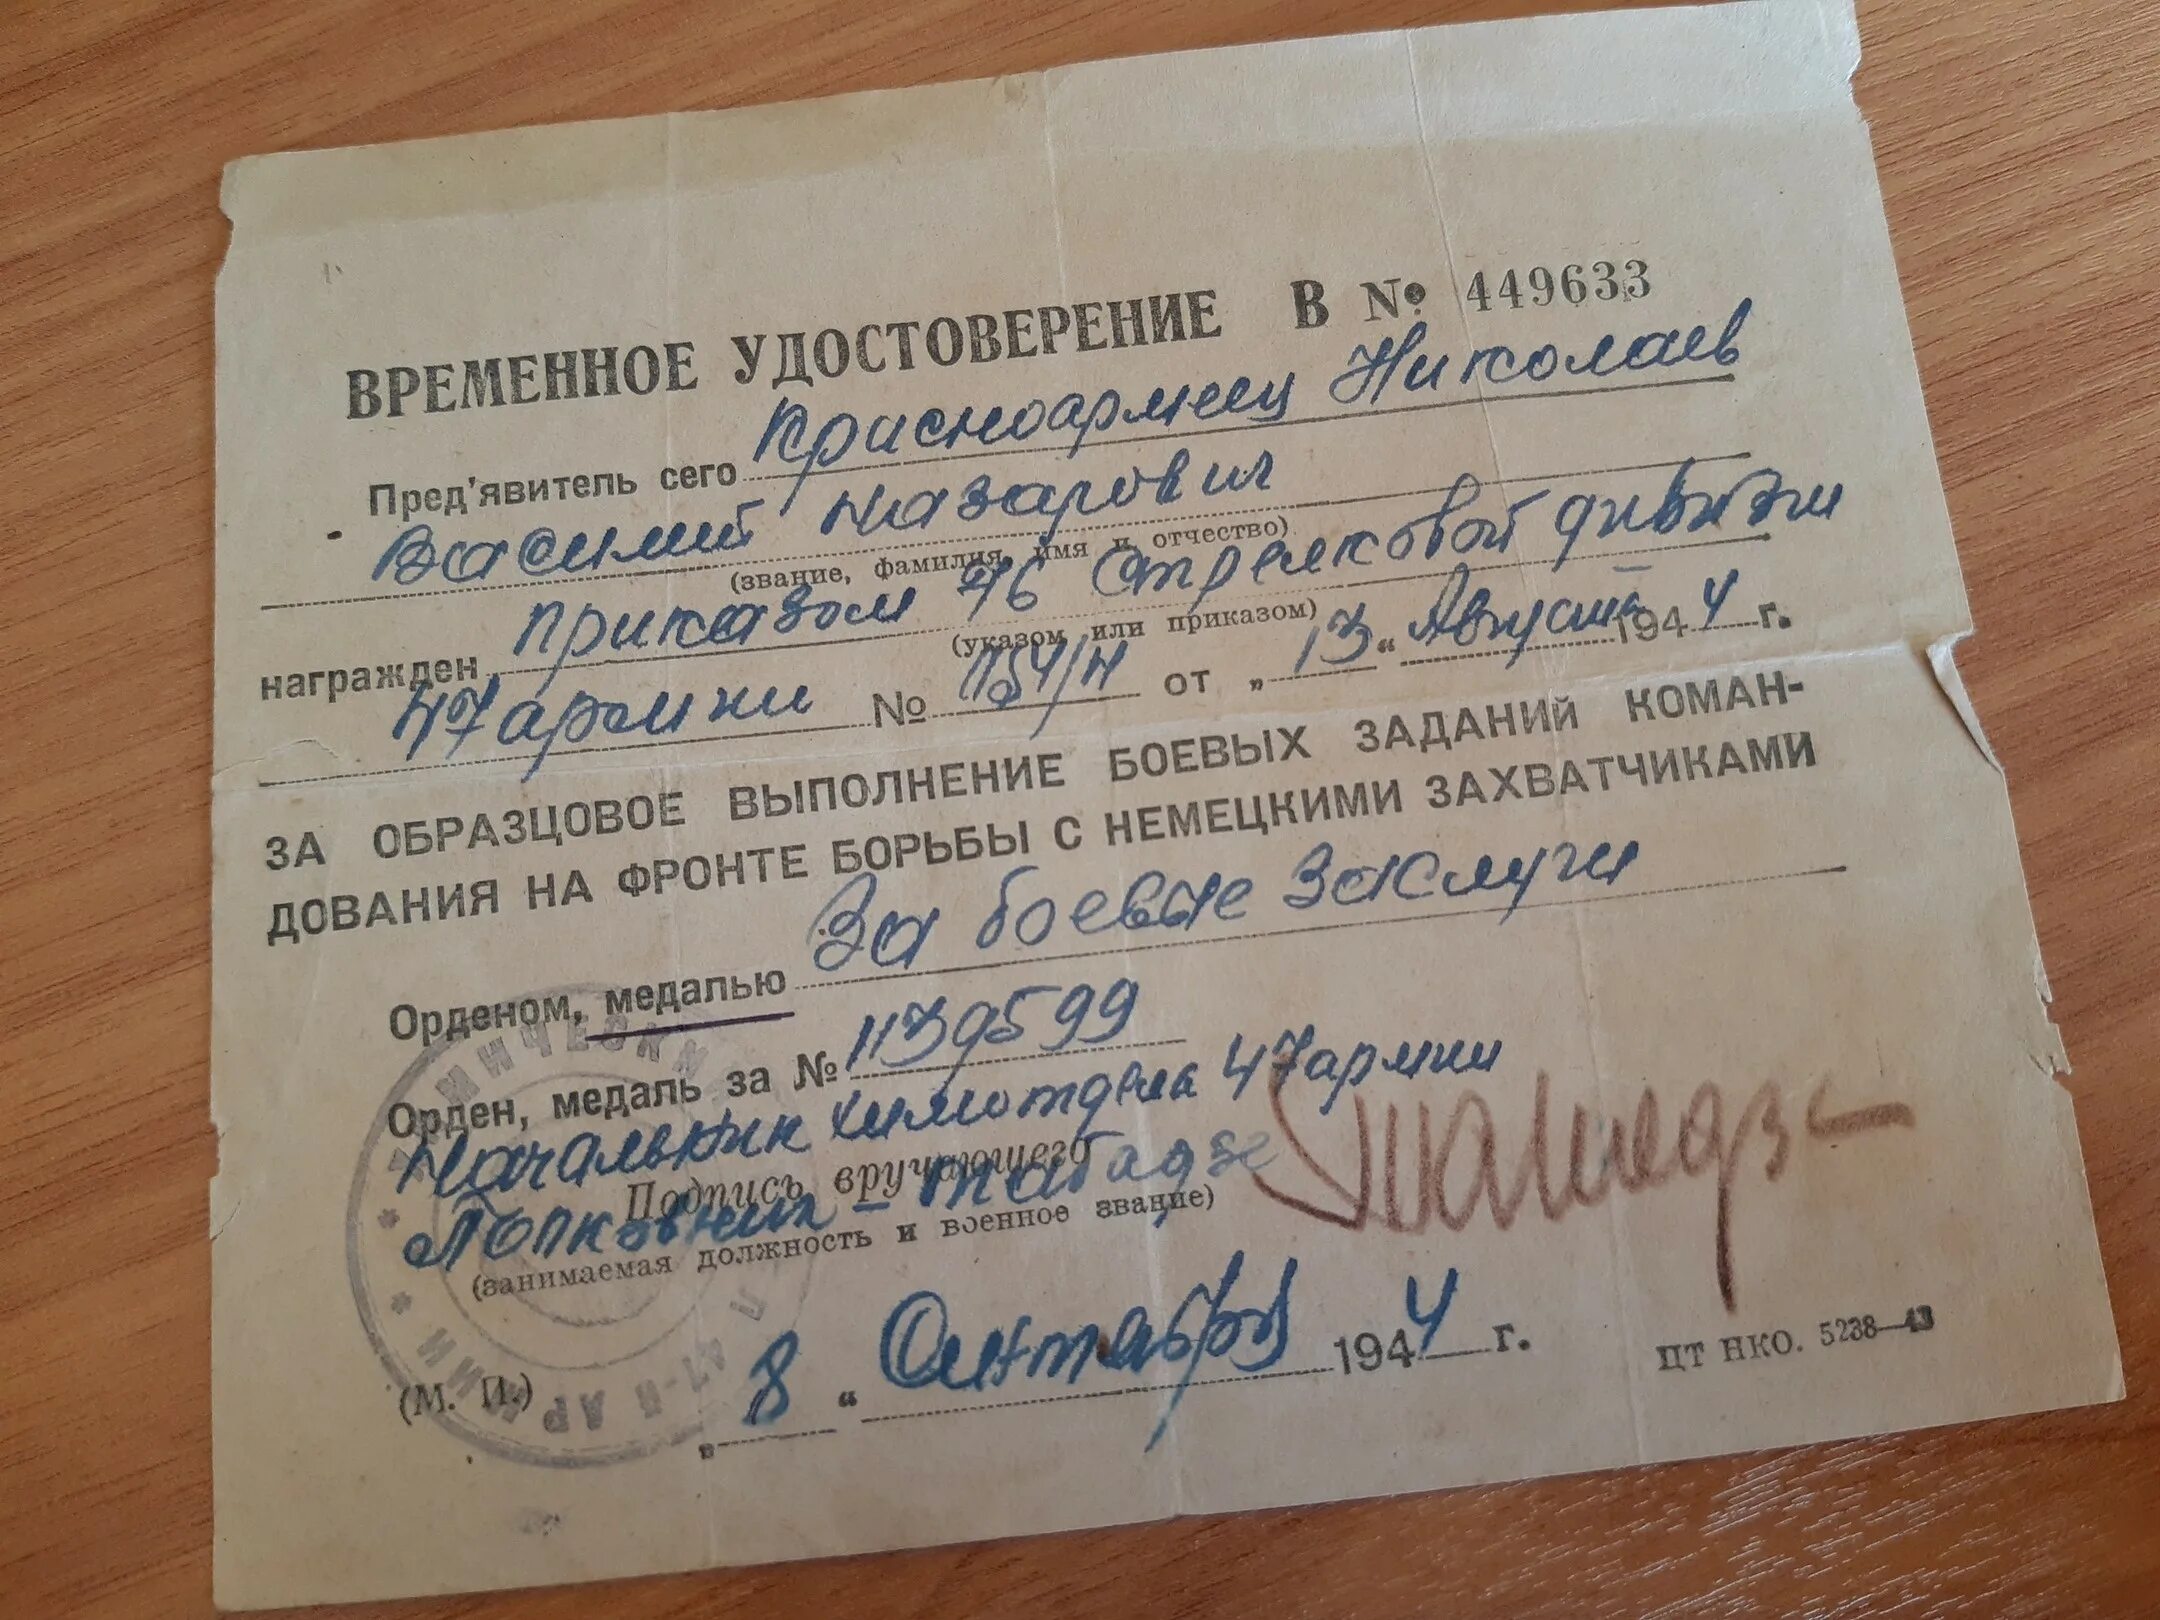 ВРЕМЕННОЕ УДОСТОВЕРЕНИЕ В № 449633
Пред'явитель сего Красноармеец Николаев
Василий Назарович
(звание, фамилия, имя и отчество)
награжден приказом 76 Стрелковой дивизии
(указом или приказом)
47 армии № 054/н от „13“ Августа 1944 г.
ЗА ОБРАЗЦОВОЕ ВЫПОЛНЕНИЕ БОЕВЫХ ЗАДАНИЙ КОМАН-
ДОВАНИЯ НА ФРОНТЕ БОРЬБЫ С НЕМЕЦКИМИ ЗАХВАТЧИКАМИ
Орденом, медалью За боевые заслуги
Орден, медаль за №
Начальник химотдела 47 армии
Подпись вручающего
Полковник – Табадзе
(занимаемая должность и военное звание)
(М. П.) „8“ Октября 1944 г.
ЦТ НКО. 5238—43